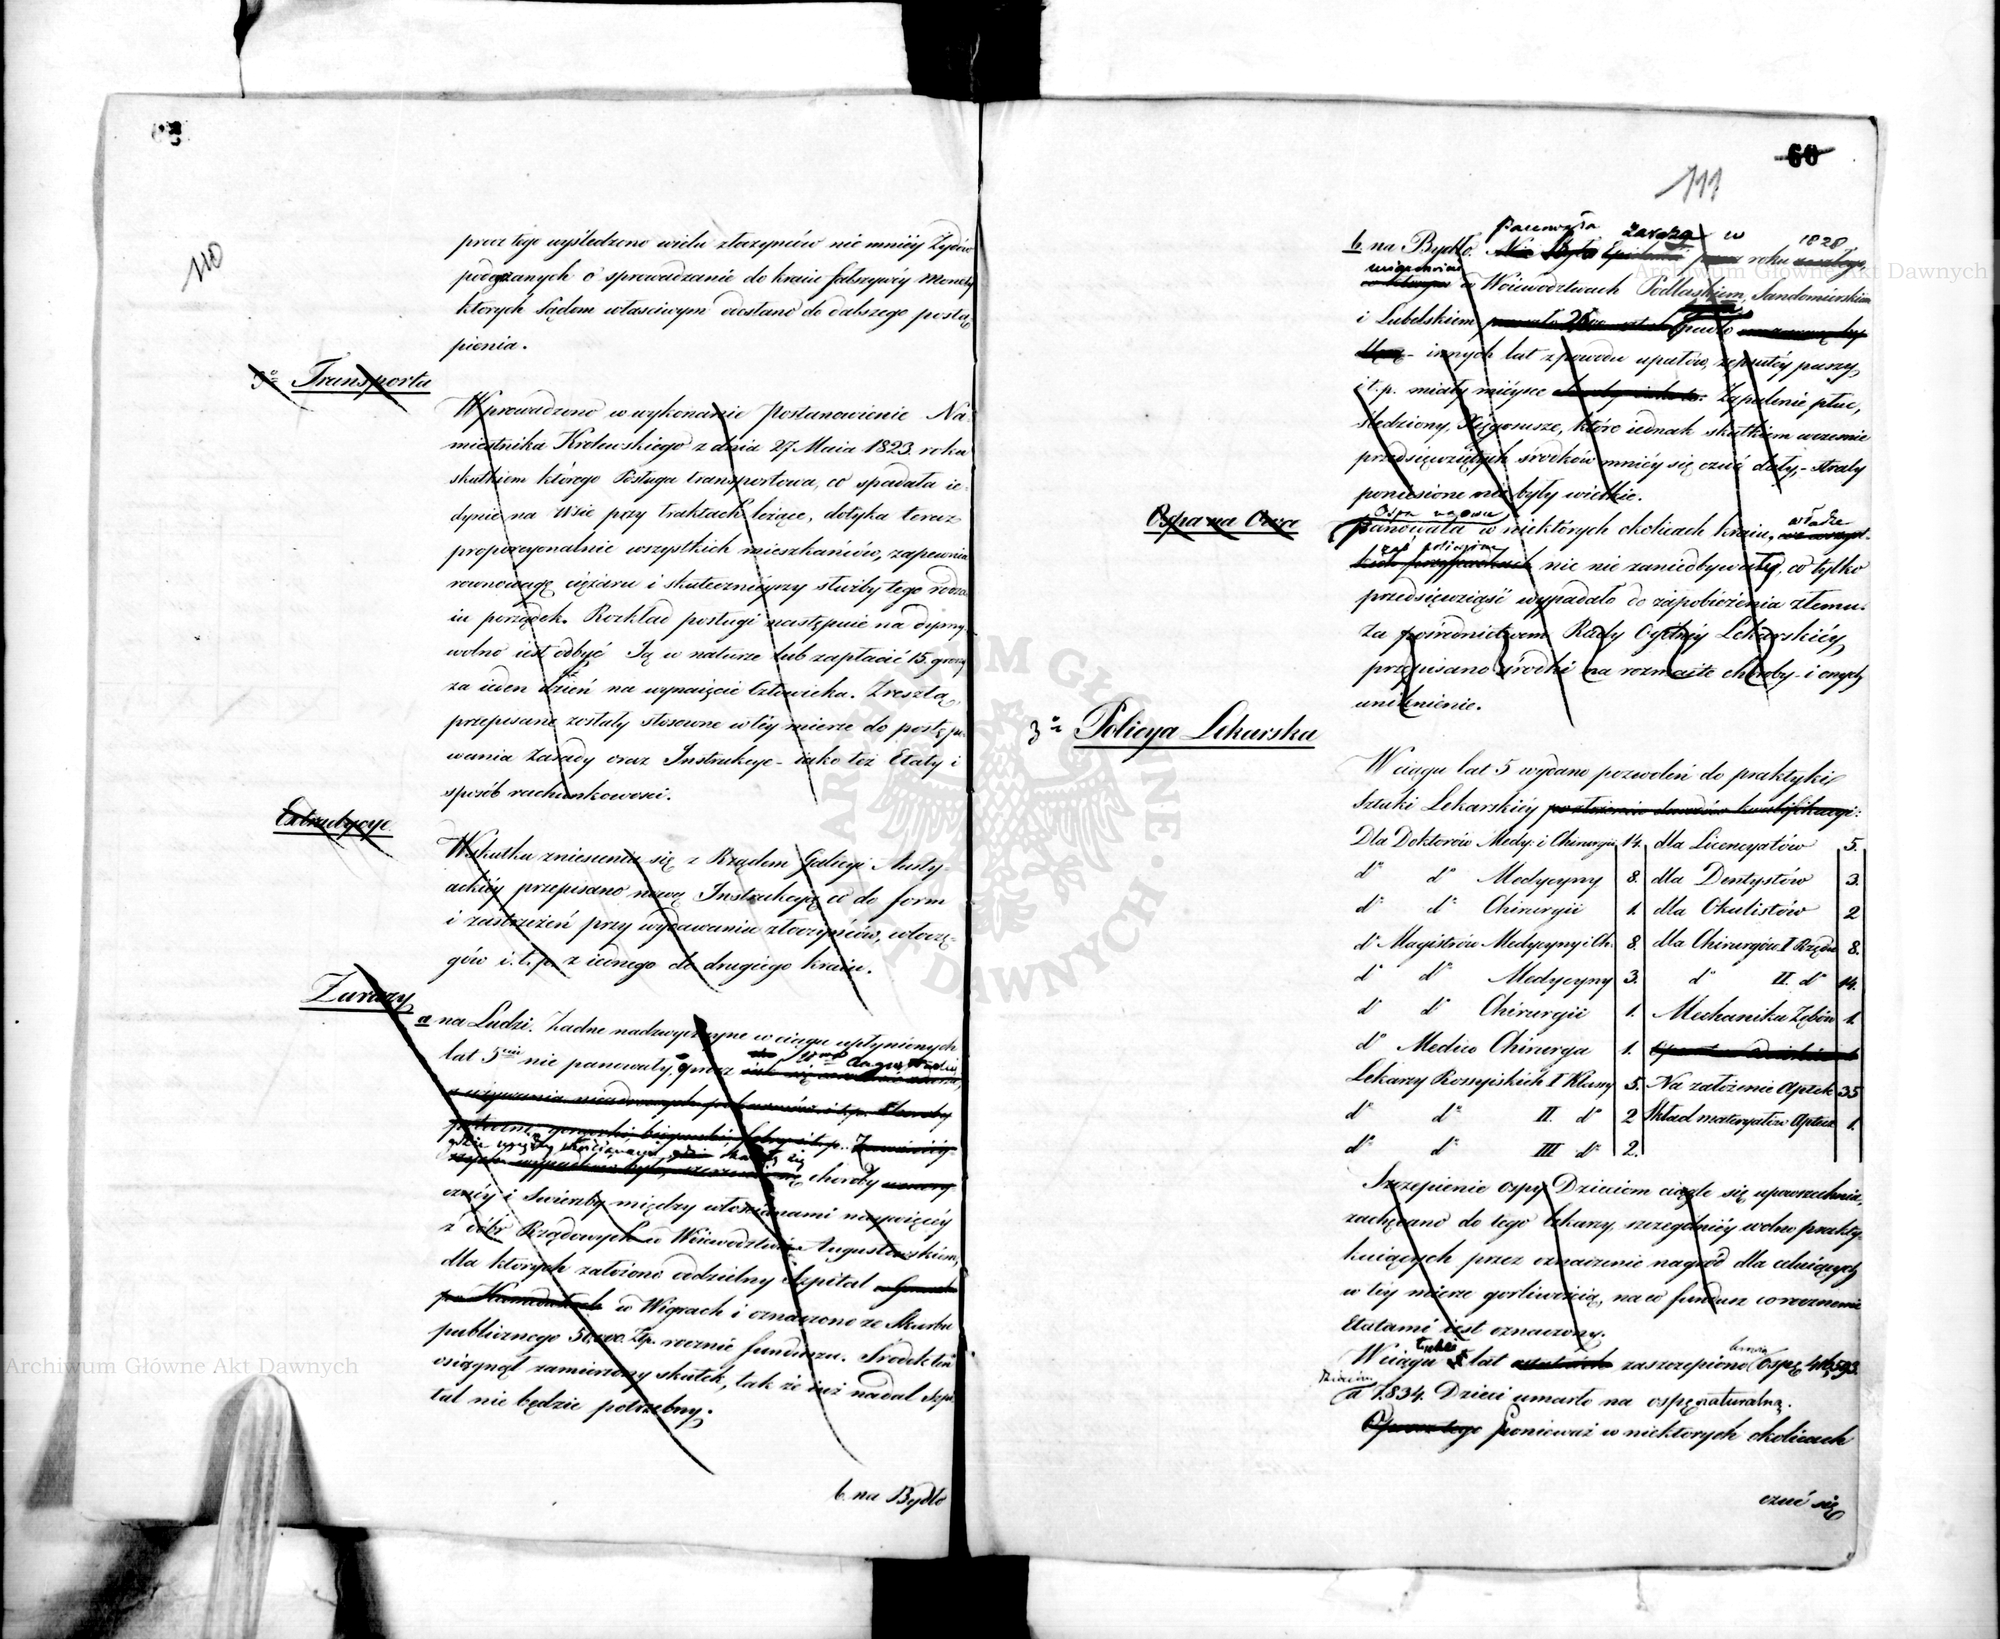 110
przez tego wyśledzono wielu złoczyńców nie mniéy Żydów
podeyrzanych o sprowadzanie do kraiu fałszywéy Monety
których Sądom właściwym odesłano do dalszego postą
pienia.
Transporta
Wprowadzono w wykonanie postanowienie Na-
miestnika Królewskiego z dnia 27 Maia 1823. roku
skutkiem którego Posługa transportowa, co spadała ie-
dynie na Wsie przy traktach leżące, dotyka teraz
proporcyonalnie wszystkich mieszkańców, zapewnia
równowagę ciężaru i skutecznieyszy służby tego rodza
iu porządek. Rozkład posługi następuie na dymy
wolno iest odbyć Ją w naturze lub zapłacić 15. groszy
za ieden dzień na wynaięcie Człowieka. Zresztą
przepisane zostały stosowne w téy mierze do postępo
wania Zasady oraz Instrukcye - iako też Etaty i
sposób rachunkowości.
Extradycye.
Wskutku zniesienia się z Rządem Galicyi Austry-
ackiéy przepisano nową Instrukcyą co do form
i zastrzeżeń przy wydawaniu złoczyńców, włoczę-
gów i. t. p. z iednego do drugiego kraiu.
Zarazy
a na Ludzi. Żadne nadzwyczayne w ciągu upłynionych
lat 5ciu nie panowały, oprócz
gdzie między włościanami
choroby
czney i Świerzby między włościanami naywięcéy
z dóbr Rządowych w Woiewództwie Augustowskiém,
dla których założono oddzielny Szpital
w Wigrach i oznaczono ze Skarbu
publicznego 50,000 Złp. rocznie funduszu. Środek ten
osiągnął zamierzony skutek, tak że iuż nadal Szpi
tal nie będzie potrzebny.
b. na Bydło
60
111
panowała zaraza w 1828
b. na Bydło. Nie była Epidemii roku zeszłego
mianowicie
w Woiewództwach Podlaskiem, Sandomirskiem
i Lubelskiem
innych lat z powodu upałów, zepsutéy paszy,
i. t. p. miały mieysce Zapalenie płuc,
śledziony, Xięgosusze, które iednak skutkiem wczesnie
przedsięwziętych środków mniéy się czuć dały, - straty
poniesione nie były wielkie.
Ospa na Owce
Ospa na owce
panowała w niektórych okolicach kraiu, władze
nic nie zaniedbywały, co tylko
przedsięwziąść wypadało do zapobieżenia złemu.
Za pośrednictwem Rady Ogólnéy Lekarskiéy,
przepisano środki na rozmaite choroby - i onych
uniknienie.
3° Policya Lekarska
W ciągu lat 5 wydano pozwoleń do praktyki
Sztuki Lekarskiéy po złożeniu dowodów kwalifikacyi:
Dla Doktorów Medy: i Chirurgii 14. dla Licencyatów 5.
do do Medycyny 8. dla Dentystów 3.
do do Chirurgii 1. dla Okulistów 2
do Magistrów Medycyny i Ch. 8. dla Chirurgów I Rzędu 8.
do do Medycyny 3. do II. do 14.
do do Chirurgii 1. Mechanika Zębów 1.
do Medico Chirurga 1.
Lekarzy Rossyiskich I Klassy 5. Na założenie Aptek 35
do do II. do 2 Skład materyałów Aptecz 1.
do do III do 2.
Szczepienie ospy Dzieciom ciągle się upowszechnia,
zachęcano do tego lekarzy, szczególniéy wolno prakty-
kuiących przez oznaczenie nagród dla celuiących
w téy mierze gorliwością, na co fundusz corocznemi
Etatami iest oznaczony.
W ciągu tychże 5 lat zaszczepiono ospę
Dzieciom
a 1,834. Dzieci umarło na ospę naturalną.
Oprócz tego Ponieważ w niektórych okolicach
czuć się
Archiwum Główne Akt Dawnych
Archiwum Główne Akt Dawnych
ARCHIWUM GŁÓWNE AKT DAWNYCH